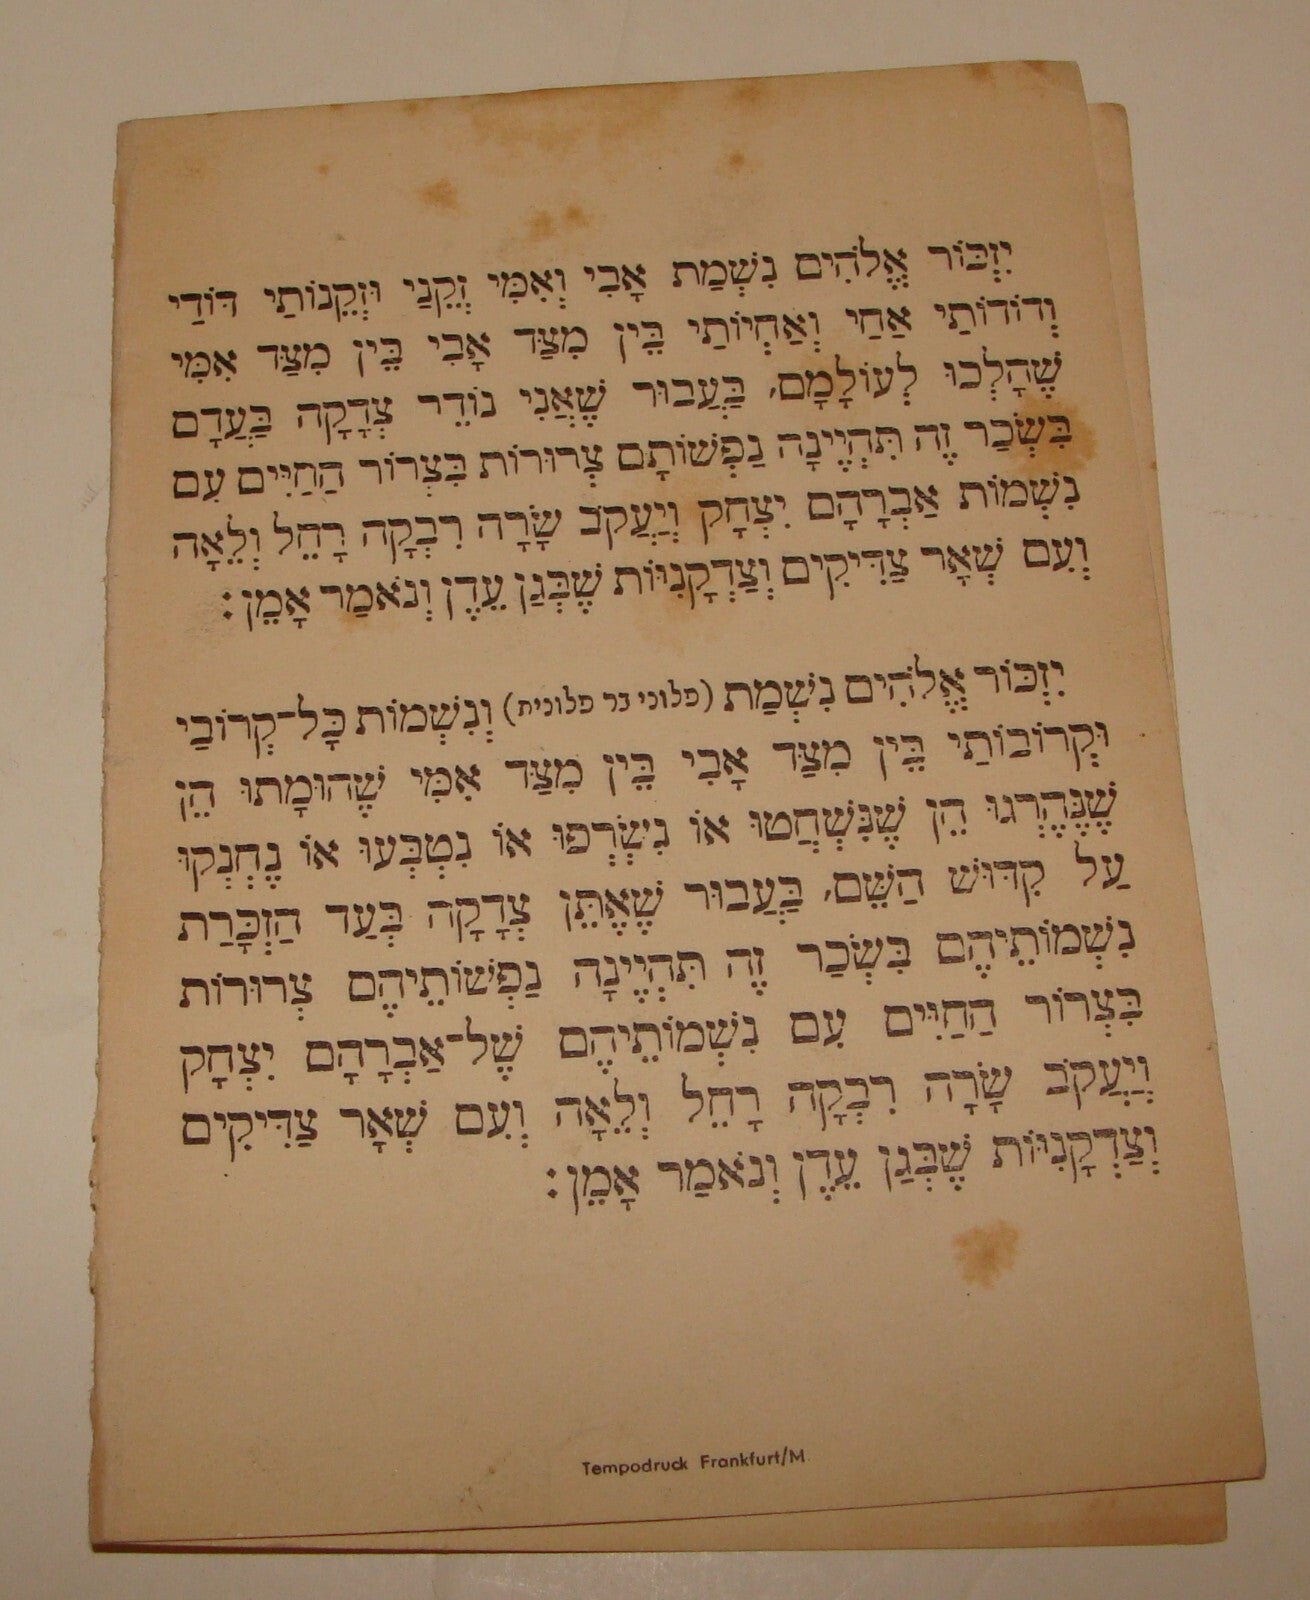 יִזְכּוֹר אֱלֹהִים נִשְׁמַת אָבִי וְאִמִּי זְקֵנַי וּזְקֵנוֹתַי דּוֹדַי
וְדוֹדוֹתַי אַחַי וְאַחְיוֹתַי בֵּין מִצַּד אָבִי בֵּין מִצַּד אִמִּי
שֶׁהָלְכוּ לְעוֹלָמָם, בַּעֲבוּר שֶׁאֲנִי נוֹדֵר צְדָקָה בַּעֲדָם
בִּשְׂכַר זֶה תִּהְיֶינָה נַפְשׁוֹתָם צְרוּרוֹת בִּצְרוֹר הַחַיִּים עִם
נִשְׁמוֹת אַבְרָהָם יִצְחָק וְיַעֲקֹב שָׂרָה רִבְקָה רָחֵל וְלֵאָה
וְעִם שְׁאָר צַדִּיקִים וְצַדְקָנִיּוֹת שֶׁבְּגַן עֵדֶן וְנֹאמַר אָמֵן:
יִזְכּוֹר אֱלֹהִים נִשְׁמַת (פלוני בר פלונית) וְנִשְׁמוֹת כָּל־קְרוֹבַי
וּקְרוֹבוֹתַי בֵּין מִצַּד אָבִי בֵּין מִצַּד אִמִּי שֶׁהוּמָתוּ הֵן
שֶׁנֶּהֶרְגוּ הֵן שֶׁנִּשְׁחֲטוּ אוֹ נִשְׂרְפוּ אוֹ נִטְבְּעוּ אוֹ נֶחְנְקוּ
עַל קִדּוּשׁ הַשֵּׁם, בַּעֲבוּר שֶׁאֶתֵּן צְדָקָה בְּעַד הַזְכָּרַת
נִשְׁמוֹתֵיהֶם בִּשְׂכַר זֶה תִּהְיֶינָה נַפְשׁוֹתֵיהֶם צְרוּרוֹת
בִּצְרוֹר הַחַיִּים עִם נִשְׁמוֹתֵיהֶם שֶׁל־אַבְרָהָם יִצְחָק
וְיַעֲקֹב שָׂרָה רִבְקָה רָחֵל וְלֵאָה וְעִם שְׁאָר צַדִּיקִים
וְצַדְקָנִיּוֹת שֶׁבְּגַן עֵדֶן וְנֹאמַר אָמֵן:
Tempodruck Frankfurt/M